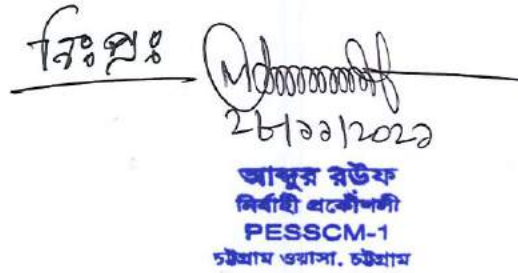 নিঃপ্রঃ
২৮/১১/২০২১
আব্দুর রউফ
নির্বাহী প্রকৌশলী
PESSCM-1
চট্টগ্রাম ওয়াসা. চট্টগ্রাম